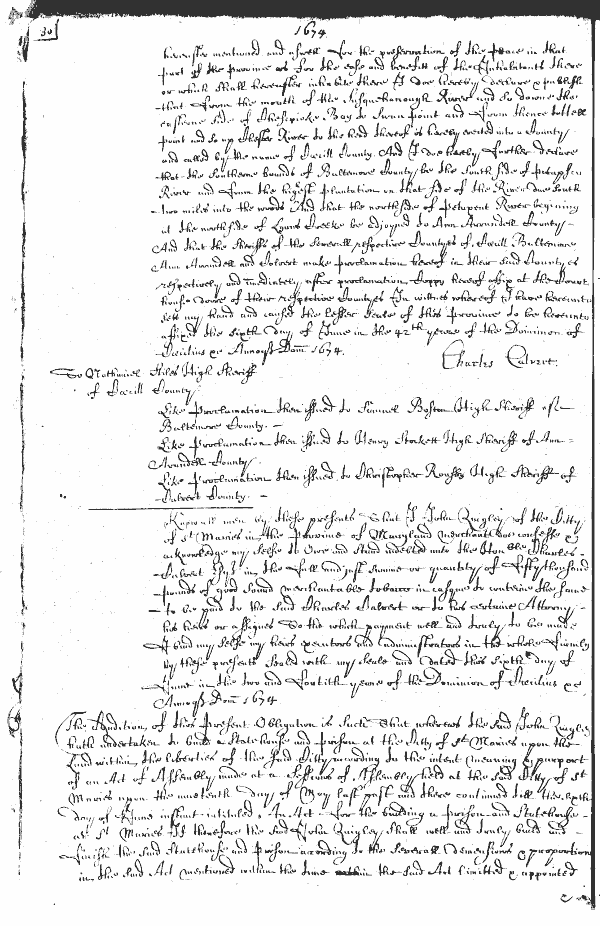 30
1674
hereafter mentioned and aswell for the preservation of the Peace in that
part of the Province as for the ease and benefitt of the Inhabitants there
or which shall hereafter inhabite there I doe hereby declare & publish
that from the mouth of the Susquehanough River and so downe the
easterne side of Chesepiake Bay to Swan point and from thence to Hell
point and so up Chester River to the head thereof is hereby erected into a County
and called by the name of Cecill County. And I doe hereby further declare
that the southerne bounds of Baltemore County be the south side of Patapsco
River and from the highest plantation on that side of the River due south
two miles into the woods And that the northside of Patuxent River begining
at the northside of Lyons Creeke be adjoyned to Ann Arrundell County
And that the Sheriffs of the severall respective Countyes of Cecill Baltemore
Ann Arundell and Calvert make proclamation hereof in their said Countyes
respectively and imediately after proclamation Coppy hereof affix at the Court
house dore of their respective Countyes In witnes whereof I have hereunto
sett my hand and caused the lesser seale of this Province to be hereunto
affixed the sixth day of June in the 42th yeare of the Dominion of
Cecilius &c Annoq Dom 1674.
Charles Calvert.
To Nathaniel Stiles High Sheriff
of Cecill County.
Like Proclamation then issued to Samuel Boston High Sheriff of
Baltemore County. -
Like Proclamation then issued to Henry Stockett High Sheriff of Ann
Arundell County.
Like Proclamation then issued to Christopher Rousby High Sheriff of
Calvert County. -
Know all men by these presents That I John Quigley of the Citty
of St Maries in the Province of Maryland merchant doe confesse &
acknowledge my selfe to owe and stand indebted unto the Honble Charles
Calvert in the full and just summe or quantity of fifty thousand
pounds of good sound merchantable tobacco in caske to conteine the same
to be paid to the said Charles Calvert or to his certaine Attorny
his heirs or assignes To the which payment well and truly to bee made
I bind my selfe my heirs executors and administrators in the whole firmly
by these presents sealed with my seale and dated this sixth day of
June in the two and fortith yeare of the Dominion of Cecilius &c
Annoq Dom 1674
The Condition of this Present Obligation is such That whereas the said John Quigley
hath undertaken to build a Statehouse and Prison at the Citty of St Maries upon the
Land within the liberties of the said Citty according to the intent meaning & purport
of an Act of Assembly made at a Sessions of Assembly held at the said Citty of St
Maries upon the day of May last past and there continued till the sixth
day of June instant intituled An Act for the building a Prison and Statehouse
at St Maries If therefore the said John Quigley shall well and truly build and
finish the said Statehouse and Prison according to the severall demensions & proportions
in the said Act mentioned within the time the said Act limitted & appointed